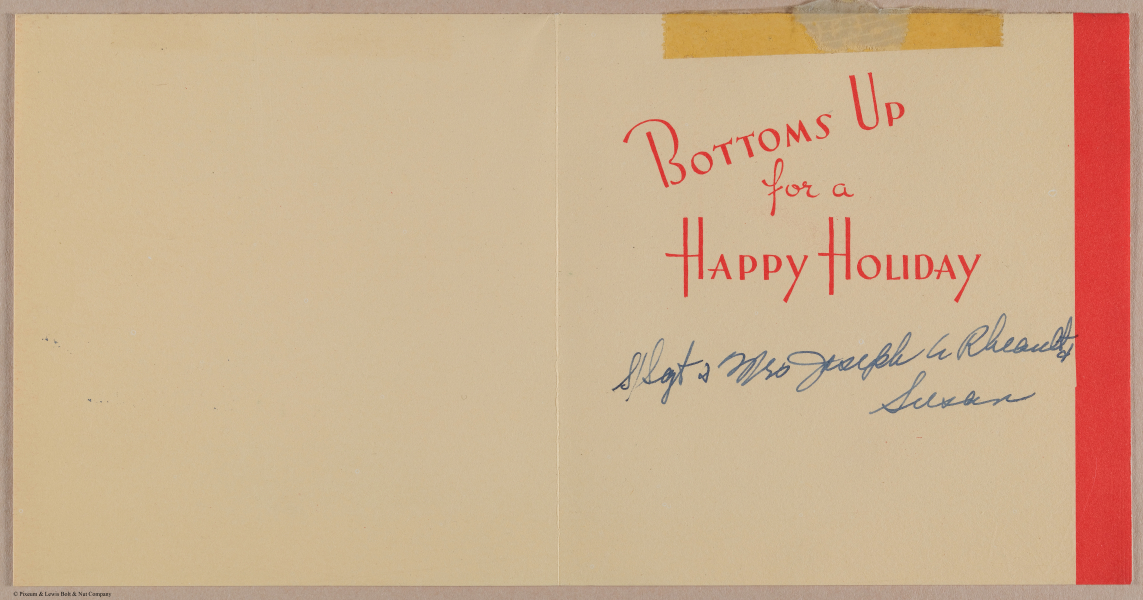 BOTTOMS UP
for a
HAPPY HOLIDAY
S/Sgt & Mrs Joseph A Rheault &
Susan
© Pixeum & Lewis Bolt & Nut Company